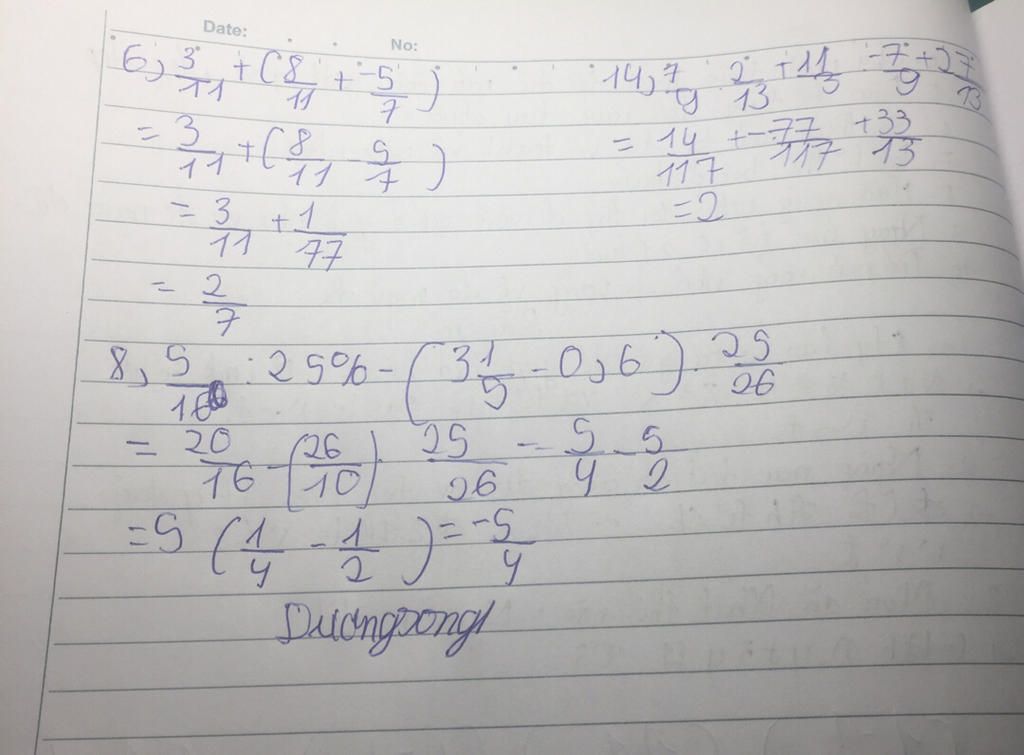 Date: No:
6, 3/11 + (8/11 + -5/7)
= 3/11 + (8/11 - 5/7)
= 3/11 + 1/77
= 2/7
14, 7/9 . 2/13 + 11/3 . -7/9 + 27/13
= 14/117 + -77/117 + 33/13
= 2
8, 5/16 : 25% - (3 1/5 - 0,6) . 25/26
= 20/16 - (26/10) . 25/26 = 5/4 - 5/2
= 5 (1/4 - 1/2) = -5/4
Duongzongl